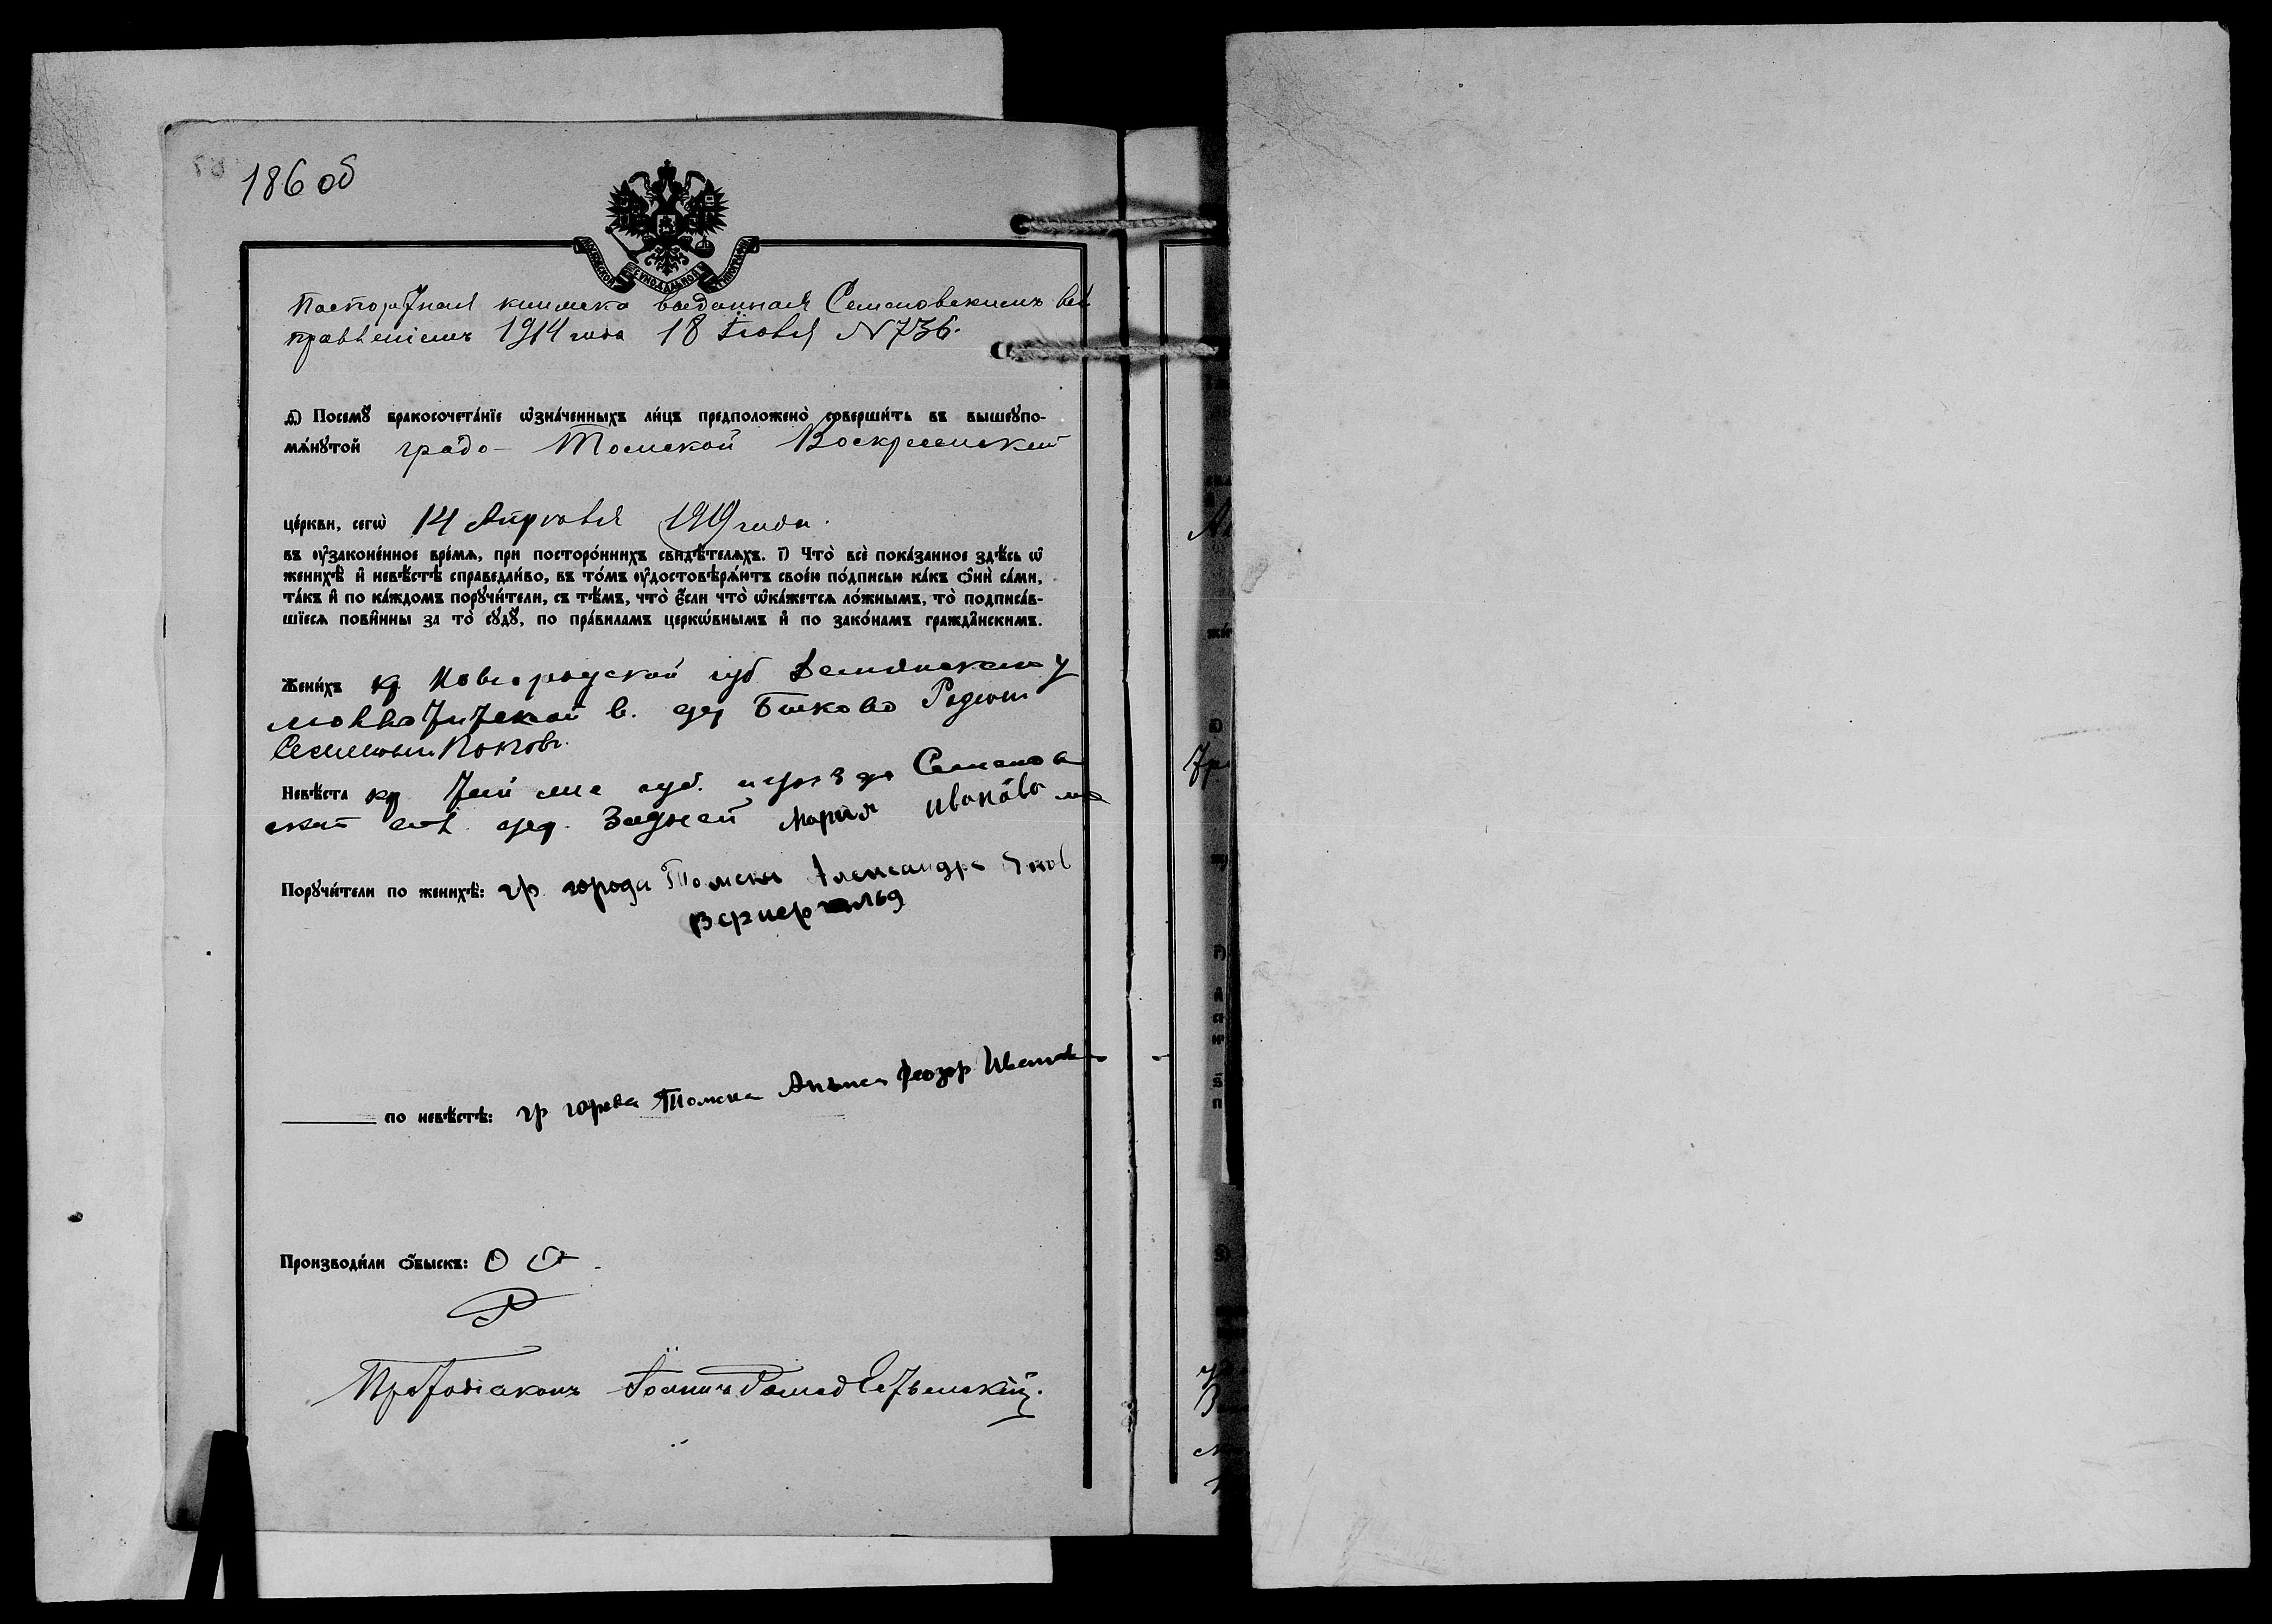 186 об
Московской Сѵнодальной Типографіи
Паспортная книжка выданная Семеновскимъ вол
правленіемъ 1914 года 18 Іюля N 736.
д҃і) Посемꙋ̀ бракосочета́нїе ѡ҆зна́ченныхъ ли́цъ предположено̀ соверши́ть въ вышеꙋпо-
мѧ́нꙋтой градо-Томской Воскресенской
це́ркви, сегѡ̀ 14 Апрѣля 1919 года.
въ ᲂу҆законе́нное вре́мѧ, при посторо́ннихъ свидѣ́телѧхъ. г҃) Что̀ всѐ пока́занное здѣ́сь ѡ҆
женихѣ̀ и҆ невѣ́стѣ справедли́во, въ то́мъ ᲂу҆достовѣрѧ́ютъ свое́ю по́дписью ка́къ ѻ҆нѝ са́ми,
та́къ и҆ по ка́ждомъ порꙋчи́тели, съ тѣ́мъ, что̀ є҆́сли что̀ ѡ҆ка́жетсѧ ло́жнымъ, то̀ подписа́в-
шїесѧ пови́нны за то̀ сꙋдꙋ̀, по пра́виламъ церкѡ́внымъ и҆ по зако́намъ гражда́нскимъ.
Жени́хъ кр Новгородской губ Демянскаго у
в. дер Быково Родион
Невѣ́ста кр губ. и уезда Семенов
ской вол. дер. Мария Иванова
Порꙋчи́тели по женихѣ̀: гр. города Томска Александра
по невѣ́стѣ: гр города Томска Феодор Иванов
Производи́ли ѻ҆́быскъ:
Протодіаконъ Іоаннъ